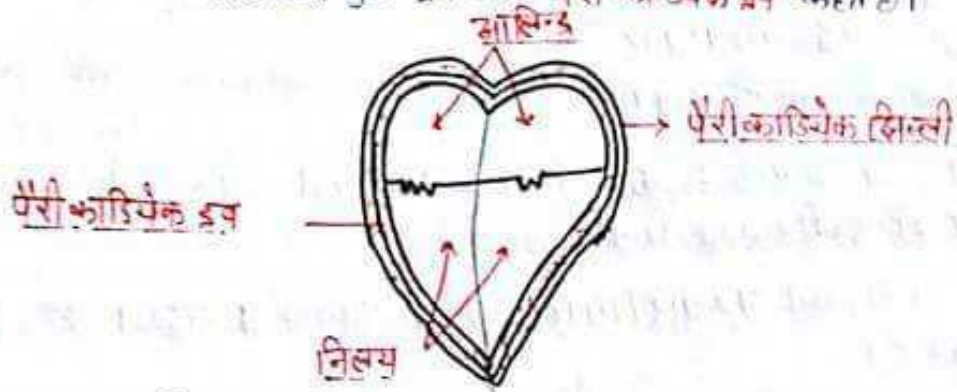 आलिन्द
पैरीकाडियेक झिल्ली
पैरीकाडियेक द्रव
निलय